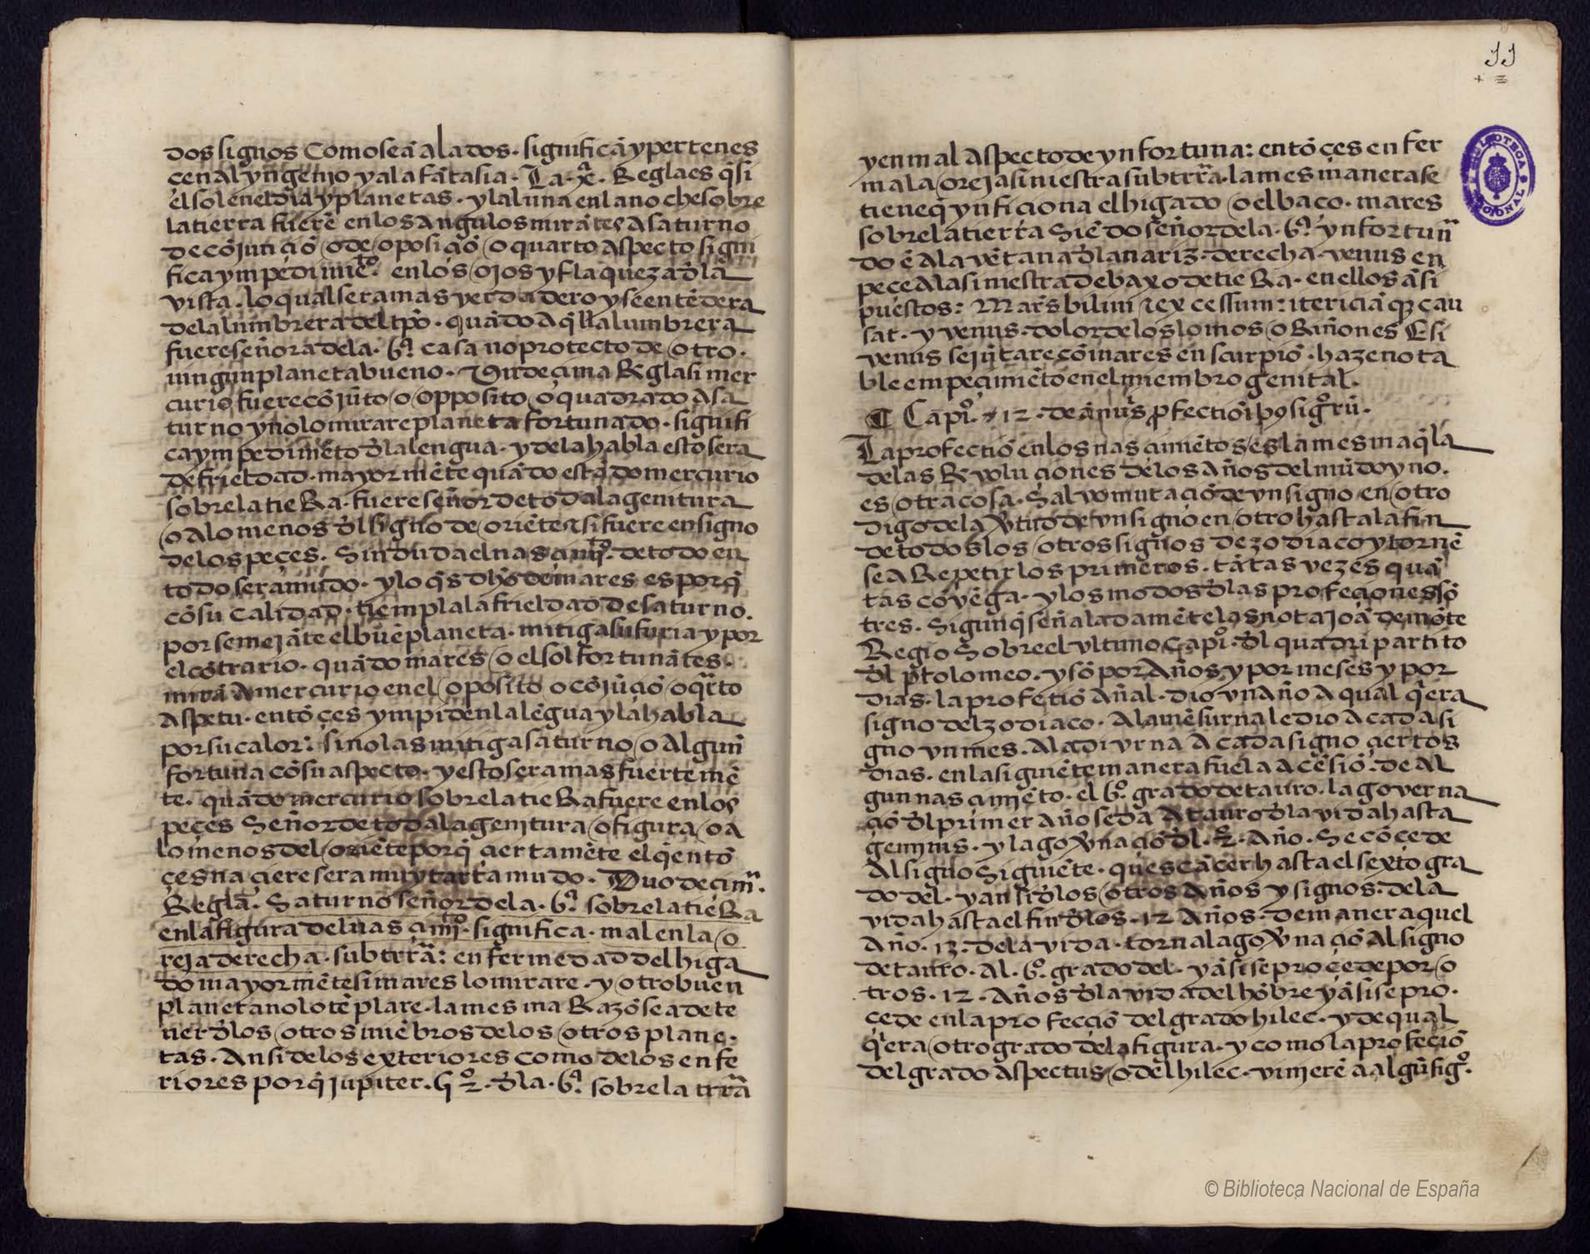 dos signos Como seā alados · significā y pertenes
çen al yngenio y a la fātasia · La · xᵉ · Reglaes q̄ si
el sol enel dia y planetas · y la luna en la noche sobre
la tierra fuerē en los angulos mirātes a saturno
de cōjunçiō o de oposiçiō o quarto aspecto signi
fica ympedimiēᵗᵒ en los ojos y flaqueza dla
vista · lo qual sera mas verdadero y se entēdera
dela lumbrera del tp̄o · quādo aq̄lla lumbrera
fuere señora dela · 6ᵃ casa no protecto de otro ·
ningun planeta bueno · Undeçima Regla si mer
curio fuere cōjūto o opposito o quadrado a sa
turno y no lo mirare planeta fortunado · signifi
ca ympedimēto dla lengua · y dela habla esto sera
de frieldad · mayormēte quādo estādo mercurio
sobre la tieRa · fuere señor de toda la genitura
o alo menos dl signo de oriēte & si fuere en signo
delos peçes · Sin duda el nasçimiᵗᵒ · de todo en
todo sera mudo · y lo q̄ es dho de mares es porq̄
cō su calidad · tiempla la frieldad de saturno.
por semejāte el buē planeta · mitiga su furia y por
el cōtrario · quādo mares o el sol fortunātes ·
mirā a mercurio en el oposito o cōjūçiō o qᵃrto
aspetu · entōçes ympidēn la lēgua y la habla
por su calor: si no las mitiga saturno o algun
fortuna cō su aspecto · y esto sera mas fuertemē
te · quādo mercurio sobre la tieRa fuere en los
peçes Señor de toda la genitura o figura o a
lo menos del oriēte porq̄ çiertamēte el q̄ entō
çes naçiere sera muy tartamudo · Duodeçimᵃ ·
Regla · Saturno señor dela · 6ᵃ sobre la tieRa
en la figura del nasçimiᵗᵒ · significa · mal en la o
reja derecha · subtrrᵃ: enfermedad del higa
do mayormēte si mares lo mirare · y otro buen
planeta no lo tēplare · la mesma Razō sea de te
ner dlos otros miēbros delos otros plane ·
tas · Ansi delos exteriores como delos enfe
riores porq̄ jupiter · Sᵒʳ · dla · 6ᵃ sobre la trrᵃ
11
yen mal aspecto de ynfortuna: entōçes enfer
ma la oreja siniestra subtrrᵃ · la mesma manera se
tiene q̄ ynficiona el higado o el baço · mares
sobre la tierra Siēdo señor dela · 6ᵃ ynfortunᵃ
do ē a la vētana dla nariz · derecha · venus en
peçe a la siniestra debaxo de tieRa · en ellos āsi
puestos: Mars bilini & excessum: itericiā q̄ cau
sat · y venus · dolor delos lomos o Rañones E si
venus se jūtare cō mares en scurpiō · haze nota
ble empeçimiēto en el miembro genital ·
¶ Capiᵒ · 12 · de ānuis profectioībꝯ sigᵒrū ·
La profectiō en los nasçimiētos es la mesma q̄ la
delas Revoluçiones delos años del mūdo y no ·
es otra cosa · Salvo mutaçiō de vn signo en otro
digo dela virtud de vn signo en otro hasta la fin
de todos los otros signos de zodiaco y tornē
se a Repetir los primeros · tātas vezes quā
tas cōvēga · y los modos dlas profeçiones sō
tres. Sigun q̄ señaladamēte los nota joā de mōte
Regio Sobre el vltimo Capiᵒ · dl quadripartito
dl ptolomeo · y sō por Años y por meses y por
dias · la profectiō añal · dio vn año a qual q̄era
signo del zodiaco · Ala mēsurnal e dio a cada si
gno vn mes · Ala diurna a cada signo çiertos
dias · en la siguiēte manera fue la açēsiō: de al
gun nasçimiēto · el 6ᵒ grado de tauro · la governa
çiō dl primer año se da A tauro dla vida hasta
geminis · y la govᵉrnaçiō dl · 2ᵒ · Año · Se cōçede
Al signo siguiēte · que es cāçer hasta el sexto gra
do del · y ansi dlos otros Años y signos: dela
vida hasta el fin dlos · 12 Años · de manera quel
Año · 13: dela vida · torna la govᵉrnaçiō Al signo
de tauro · Al · 6ᵒ grado del · y āsi se proçede por o
tros · 12 · Años dla vida del hōbre y āsi se pro ·
çede en la profecçiō del grado hilec · y de qual
q̄era otro grado dela figura · y como la profeçiō
del grado aspectus o del hilec · vinierē a algū sigᵒ ·
BIBLIOTECA NACIONAL
© Biblioteca Nacional de España